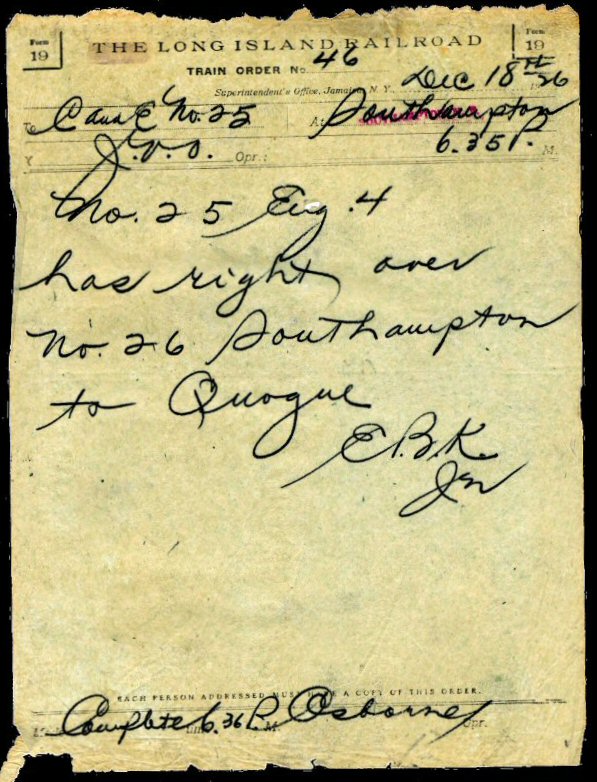 Form 19 THE LONG ISLAND RAILROAD Form 19
TRAIN ORDER No. 46
Superintendent's Office, Jamaica, N. Y., Dec 18th 26
To C and E No. 25 At Southampton
J.V.O. Opr.; 6.35 P. M.
No. 25 Eng. 4
has right over
No. 26 Southampton
to Quogue
E.B.K.
EACH PERSON ADDRESSED MUST HAVE A COPY OF THIS ORDER.
Complete 6.36 P. M. Osborne Opr.